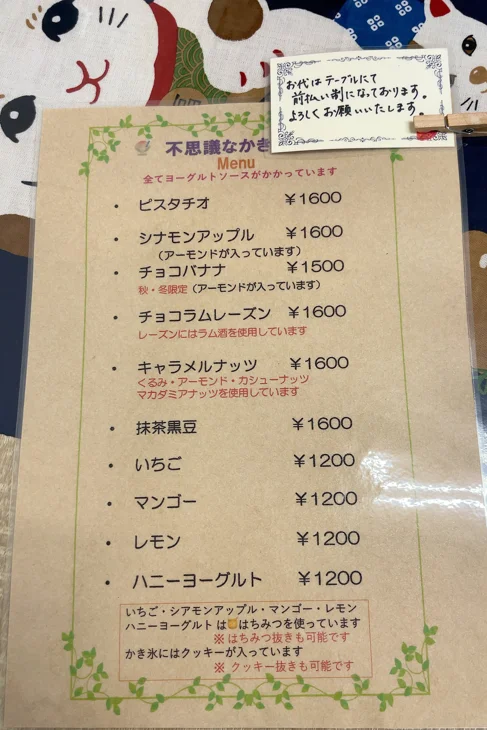 お代はテーブルにて
前払い制になっております。
よろしくお願いいたします。
不思議なかき
Menu
全てヨーグルトソースがかかっています
・ ピスタチオ ¥1600
・ シナモンアップル ¥1600
(アーモンドが入っています)
・ チョコバナナ ¥1500
秋・冬限定 (アーモンドが入っています)
・ チョコラムレーズン ¥1600
レーズンにはラム酒を使用しています
・ キャラメルナッツ ¥1600
くるみ・アーモンド・カシューナッツ
マカダミアナッツを使用しています
・ 抹茶黒豆 ¥1600
・ いちご ¥1200
・ マンゴー ¥1200
・ レモン ¥1200
・ ハニーヨーグルト ¥1200
いちご・シアモンアップル・マンゴー・レモン
ハニーヨーグルト は🍯はちみつを使っています
※ はちみつ抜きも可能です
かき氷にはクッキーが入っています
※ クッキー抜きも可能です